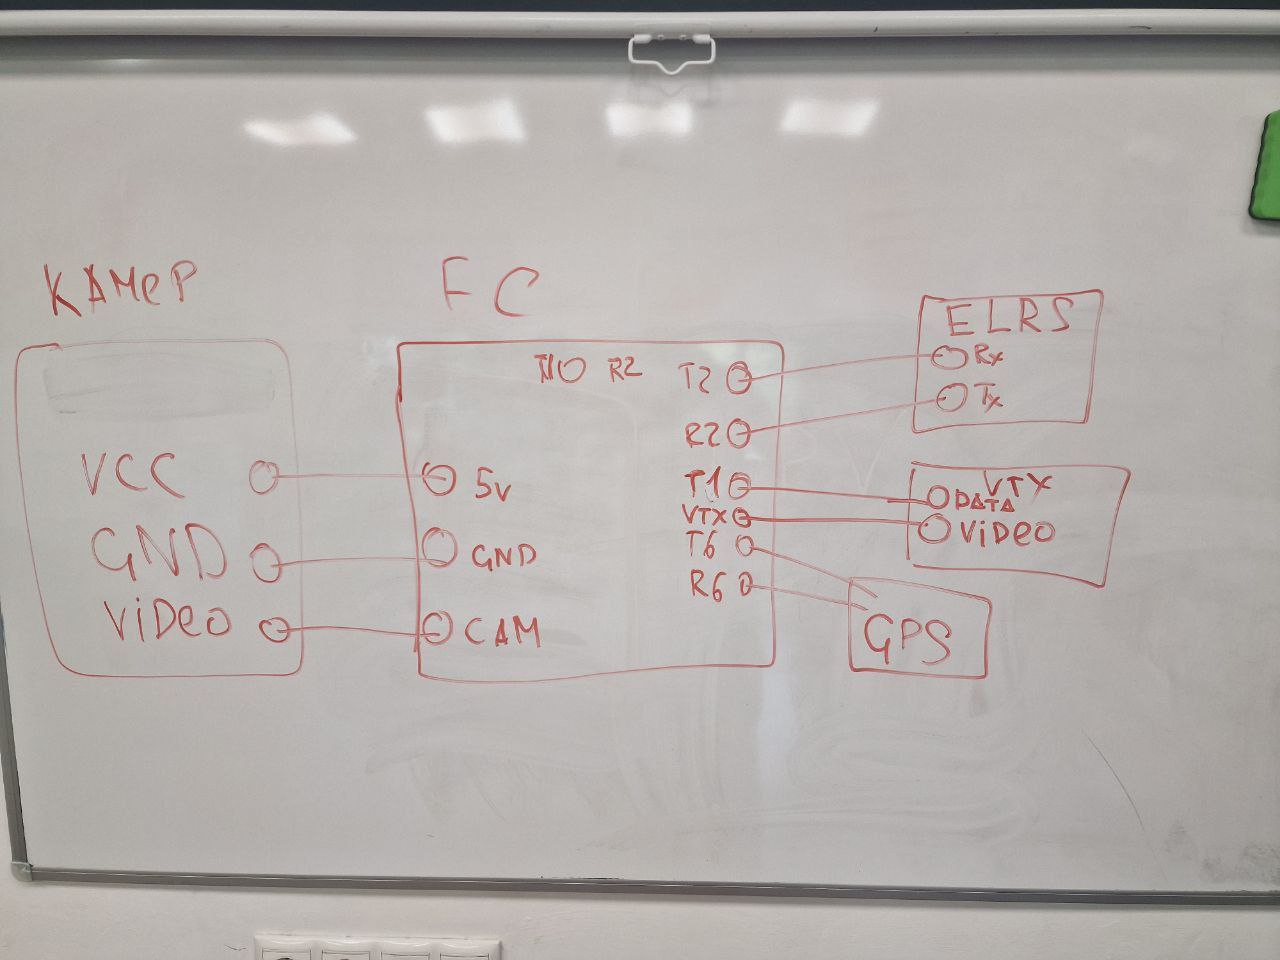 КАМеР
VCC
GND
ViDeo
FC
R2
T2
R2
T1
VTX
T6
R6
5v
GND
CAM
ELRS
Rx
Tx
VTX
DATA
ViDeo
GPS